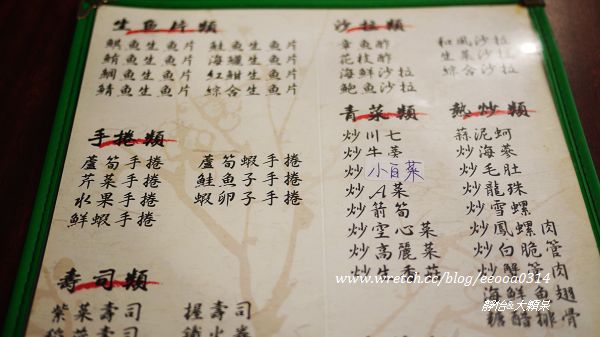 生魚片類
鯕魚生魚片
鮭魚生魚片
鮪魚生魚片
海鱺生魚片
鯛魚生魚片
紅魽生魚片
鯖魚生魚片
綜合生魚片
手捲類
蘆筍手捲
蘆筍蝦手捲
芹菜手捲
鮭魚子手捲
水果手捲
蝦卵手捲
鮮蝦手捲
壽司類
紫菜壽司
握壽司
沙拉類
章魚醋
和風沙拉
花枝醋
生菜沙拉
海鮮沙拉
綜合沙拉
鮑魚沙拉
青菜類
炒川七
炒牛蒡
炒小白菜
炒A菜
炒箭筍
炒空心菜
炒高麗菜
熱炒類
蒜泥蚵
炒海蔘
炒毛肚
炒龍珠
炒雪螺
炒鳳螺肉
炒白脆管
炒蟹管肉
海鮮魚翅
糖醋排骨
www.wretch.cc/blog/eeooa0314
靜怡&大顆呆